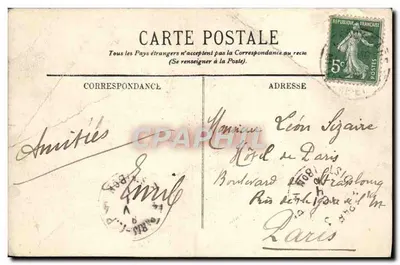 RÉPUBLIQUE FRANÇAISE
5c
POSTES
CARTE POSTALE
Tous les Pays étrangers n'acceptent pas la Correspondance au recto
(Se renseigner à la Poste).
CORRESPONDANCE
ADRESSE
Amitiés
Monsieur Léon Sizaire
Hôtel de Paris
Boulevard Strasbourg
Près de la gare de l'
Paris
CARTHAPHIL